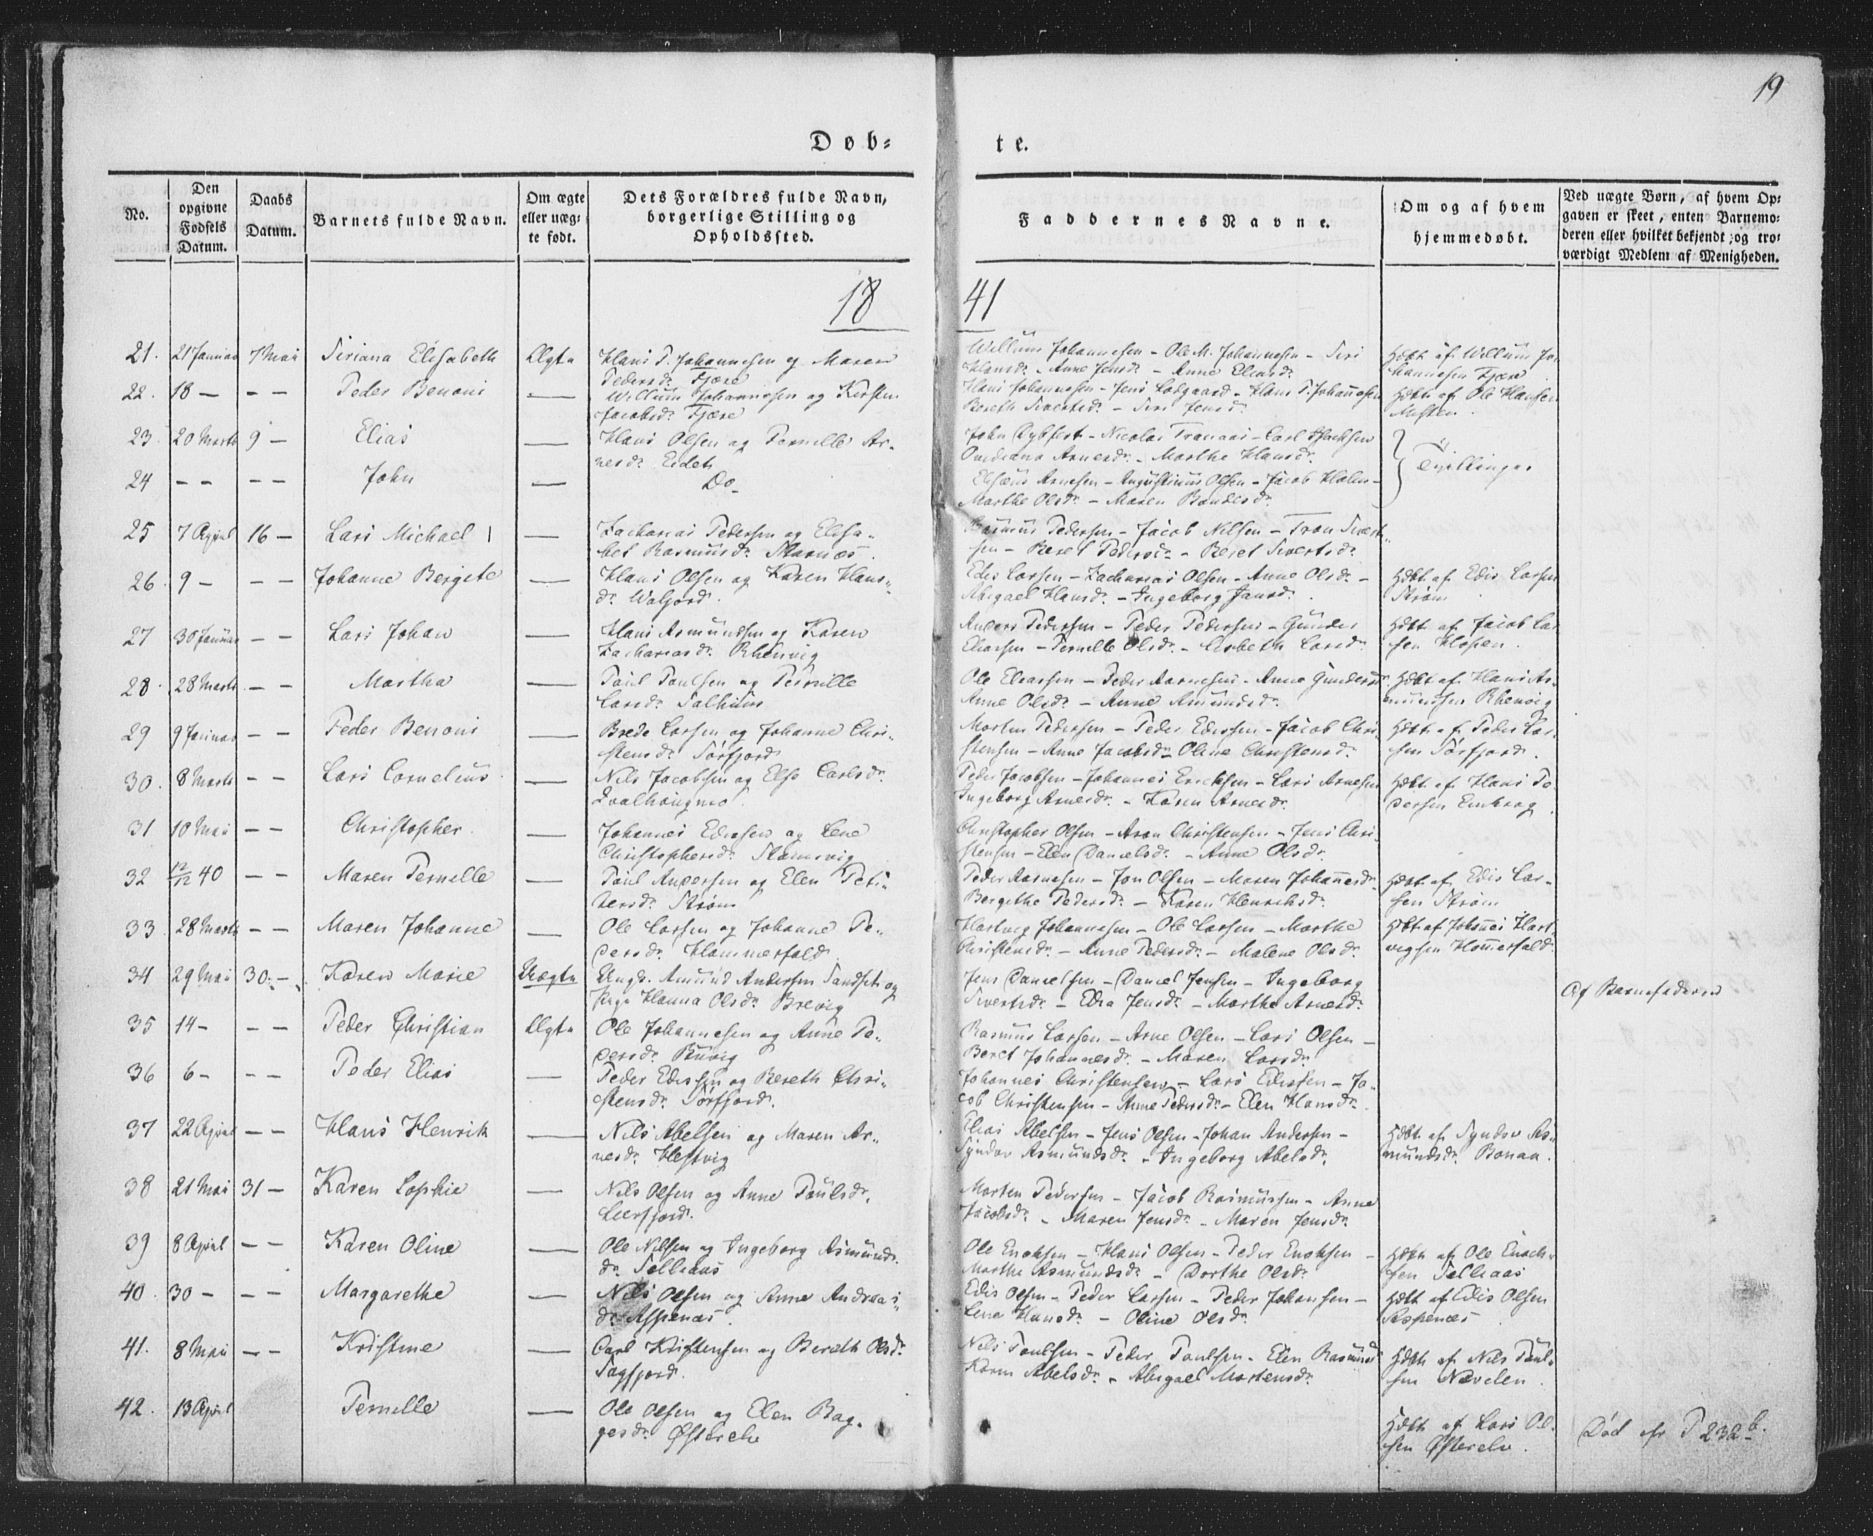 19
Døb=
te.
No.
Den opgivne Fødsels Datum.
Daabs Datum.
Barnets fulde Navn.
Om ægte eller uæg= te født.
Dets Forældres fulde Navn, borgerlige Stilling og Opholdssted.
Faddernes Navne.
Om og af hvem hjemmedøbt.
Ved uægte Børn, af hvem Op= gaven er skeet, enten Barnemo= deren eller hvilket bekjendt, og tro= værdigt Medlem af Menigheden.
18
41
21. 21 Januar 7 Mai Siriana Elisabeth Ægte Hans P. Johannesen og Maren
Pedersdr. Fjære
Willum Johannesen - Ole M. Johannesen - Siri
Hansdr. - Anne Jensdr. - Anne Eliasdr.
Hdbt af Willum Jo-
hannesen Fjære
22. 18 - - - Peder Benoni — Willum Johannesen og Kirsten
Jacobsdr. Fjære
Hans Johannesen - Jens Lodgaard - Hans P. Johannesen
Bereth Sivertsdr. - Siri Jensdr.
Hdbt af Ole Hansen
23. 20 Marts 9 - Elias — Hans Olsen og Pernille Ar-
nesdr. Eidet
John Dybfest - Nicolai Tranaas - Carl
Arnesdr. - Marthe Hansdr.
Tvillinger
24 - - - - John — Do-
Arnesen - Augustinus Olsen - Jacob Holm -
Marthe Olsdr. - Maren
25 7 April 16 - Lars Michael — Zacharias Pedersen og Elisa-
bet Rasmusdr.
Rasmus Pedersen - Jacob Nilsen - Tron Sivert-
sen - Beret Pedersdr. - Beret Sivertsdr.
26. 9 - - - Johanne Bergete — Hans Olsen og Karen Hans-
dr. Valjord.
Edis Larsen - Zacharias Olsen - Anne Olsdr. -
Abigael Hansdr. - Ingeborg Jansdr.
Hdbt af Edis Larsen
Strøm
27 30 Januar - - Lars Johan — Hans Asmundsen og Karen
Zachariasdr. Rhenvig
Anders Pedersen - Peder Pedersen - Gunder
Eliassen - Pernelle Olsdr. - Lisbeth Larsdr.
Hdbt af Jacob Lar
sen Hopen.
28. 28 Marts - - Martha — Paul Paulsen og Pernille
Larsdr. Salhuus
Ole Eliassen - Peder Aarnesen - Anne Gundersdr
Anne Olsdr. - Anne Amundsdr.
Hdbt af Hans As-
mundsen Rhenvig
29 9 Januar - - Peder Benoni — Brede Larsen og Johanne Chri-
stensdr. Sørfjord
Morten Pedersen - Peder Edissen - Jacob Chri
stensen - Anne Jacobsdr. - Oline Christensdr.
Hdbt af Peder Lar-
sen Sørfjord.
30. 8 Marts - - Lars Cornelius — Nils Jacobsen og Else Carlsdr.
Peder Jacobsen - Johannes Ericksen - Lars Arnesen
Ingeborg Arnesdr. - Karen Arnesdr.
Hdbt af Hans Pe
dersen
31 10 Mai - - Christopher. — Johannes Edissen og Lene
Christophersdr.
Christopher Olsen - Aron Christensen - Jens Chri
stensen - Elen Danielsdr. - Anne Olsdr.
32 12/12 40 - - Maren Pernelle — Paul Andersen og Elen Pet-
tersdr. Strøm
Peder Aarnesen - Jon Olsen - Maren Johannesdr.
Bergithe Pedersdr. - Karen Henriksdr.
Hdbt af Edis Lar-
sen Strøm
33. 28 Marts - - Maren Johanne — Ole Larsen og Johanne Pe-
dersdr. Hammerfald
Hartvig Johannesen - Ole Larsen - Marthe
Christensdr. - Anne Pedersdr. - Malene Olsdr.
Hdbt af Johannes Hart
vigsen Hammerfald
34 29 Mai 30 - Karen Marie Uægte Ungk. Amund Andersen Sandset og
Pige Hanna Olsdr. Brevig
Jens Danielsen - Daniel Jensen - Ingeborg
Sivertsdr. - Edia Jensdr. - Marthe Arnesdr.
Af Barnefaderen
35 14 - - - Peder Christian Ægte Ole Johannesen og Anne Pe-
dersdr. Buvig
Rasmus Larsen - Arne Olsen - Lars Olsen -
Beret Johannesdr. - Maren Larsdr.
36 6 - - - Peder Elias — Peder Edissen og Bereth Chri-
stensdr. Sørfjord.
Johannes Christensen - Lars Edissen - Ja-
cob Christensen - Anne Pedersdr. - Elen Hansdr.
37 22 April - - Hans Henrik — Nils Abelsen og Maren Ar-
nesdr. Hestvig
Elias Abelsen - Jens Olsen - Johan Andersen -
Synder Asmundsdr. - Ingeborg Abelsdr.
Hdbt af Synder As-
mundsdr. Bonaa.
38 21 Mai 31 - Karen Sophie — Nils Olsen og Anne Paulsdr.
Leerfjord.
Morten Pedersen - Jacob Rasmussen - Anne
Jacobsdr. - Maren Jensdr. - Maren Jensdr.
39 8 April - - Karen Oline — Ole Nilsen og Ingeborg Asmunds-
dr.
Ole Enoksen - Hans Olsen - Peder Enoksen -
Marthe Asmundsdr. - Dorthe Olsdr.
Hdbt af Ole Enok-
sen
40. 30 - - - Margarethe — Nils Olsen og Anne Andreas-
dr. Aspenæs.
Edis Olsen - Peder Larsen - Peder Johansen -
Lene Hansdr. - Oline Olsdr.
Hdbt af Edis Olsen
Aspenæs
41. 8 Mai - - Kristine — Carl Kristensen og Bereth Olsdr.
Sagfjord.
Nils Paulsen - Peder Paulsen - Elen Rasmusdr
Karen Abelsdr. - Abigael Mortensdr.
Hdbt af Nils Paul-
sen Nævelen.
42. 13 April Pernelle — Ole Olsen og Elen Bag-
gesdr.
Hdbt af Lars Ol-
sen
Død efr P 232 b.